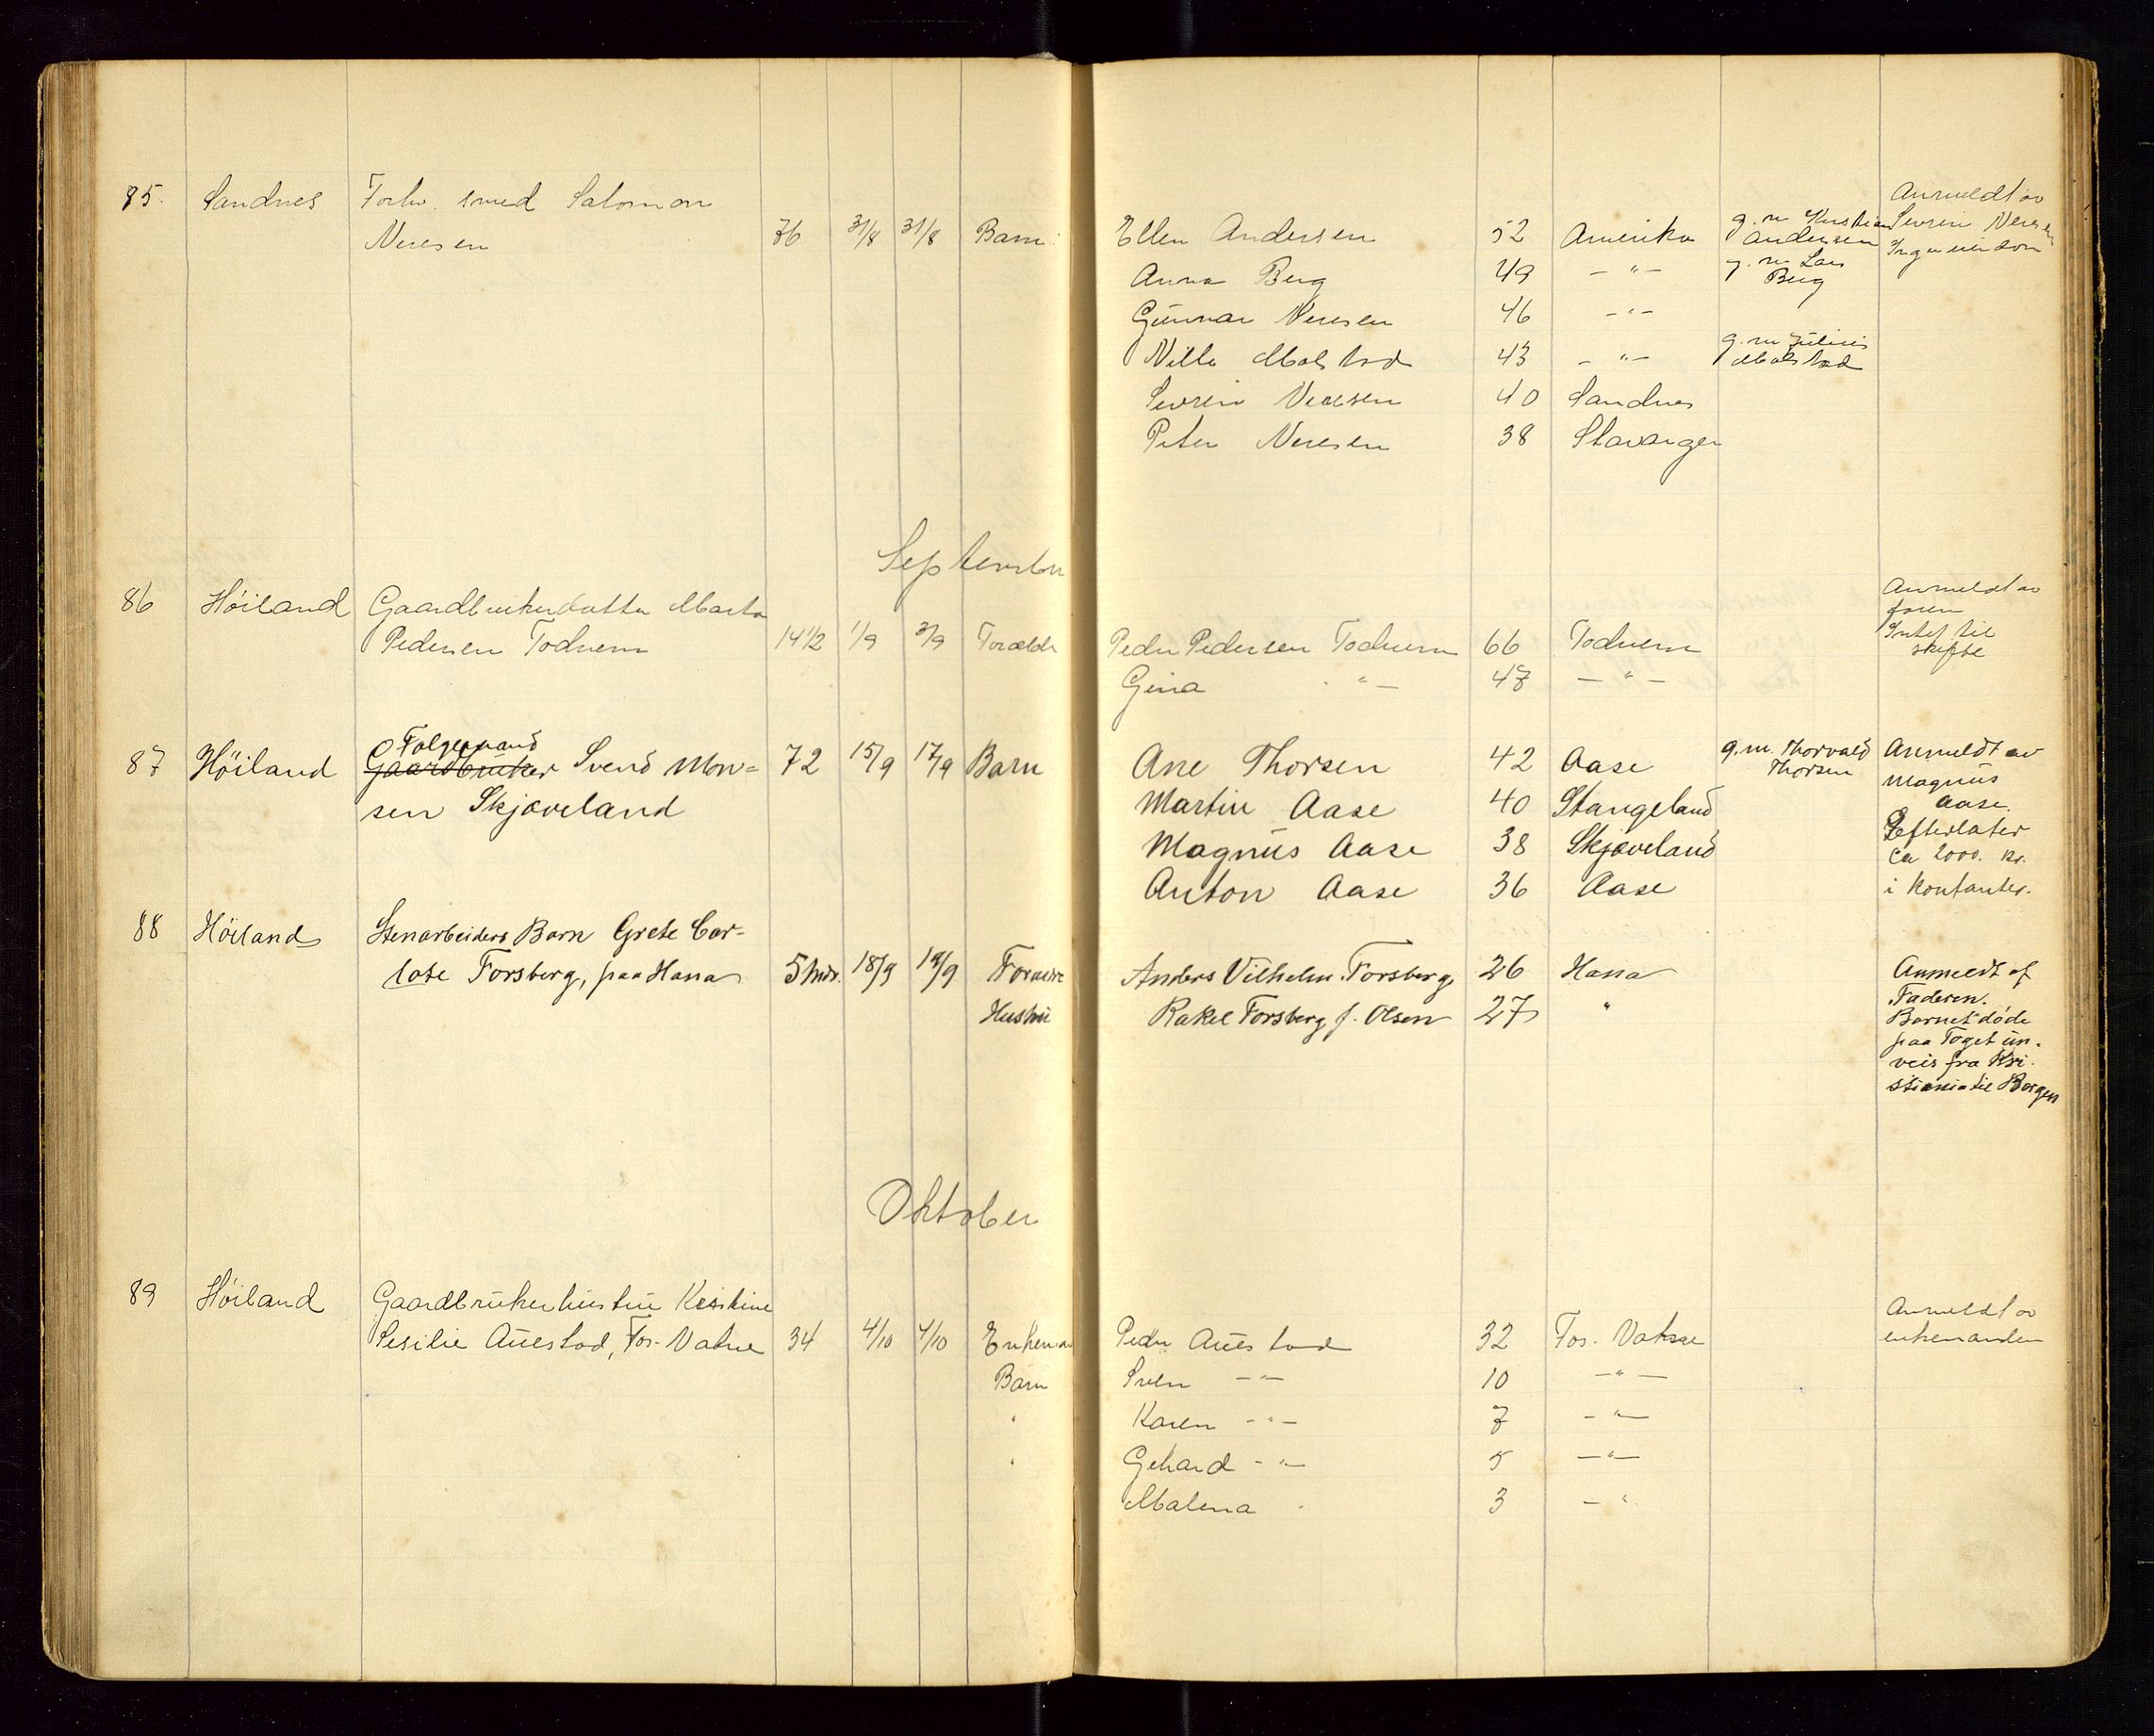 85. Sandnes Forhv. smed Salomon
Neresen 76 31/8 31/8 Barn Ellen Andersen 52 Amerika g. m. Kristian Andersen Anmeldt av Sevrin Neresen Ingen eiendom
Anna Berg 49 — " — g. m. Lars Berg
Gunnar Neresen 46 — " —
Nilla Molstad 43 — " — g. m. Julius Molstad
Sevrin Neresen 40 Sandnes
Peter Neresen 38 Stavanger
September
86 Höiland Gaardbrukerdatter Marta
Pedersen Todnem 14 1/2 1/9 3/9 Forældr Peder Pedersen Todnem 66 Todnem Anmeldt av faren Intet til skifte
Gina — " — 48 — " —
87 Höiland Gaardbruker Folgemand Svend Mon=
sen Skjæveland 72 15/9 17/9 Barn Ane Thorsen 42 Aase g. m. Thorvald Thorsen Anmeldt av
Martin Aase 40 Stangeland Magnus Aase.
Magnus Aase 38 Skjæveland Efterlater ca 2000. kr.
Anton Aase 36 Aase i kontanter.
88 Höiland Stenarbeiders Barn Grete Car-
lote Forsberg, paa Hana 5 mdr. 18/9 19/9 Anders Vilhelm Forsberg 26 Hana Anmeldt af
Hustru Rakel Forsberg f. Olsen 27 " Faderen.
Barnet döde
paa Toget un.
veis fra Kri-
stiania til Bergen
Oktober
89 Höiland Gaardbrukerhustru Kristine
Sesilie Auestad, Fos-Vatne 34 4/10 4/10 Enkeman Peder Auestad 32 Fos-Vatne Anmeldt av enkemanden
Barn Sven — " — 10 — " —
" Karen — " — 7 — " —
" Gehard — " — 5 — " —
Malena " 3 — "